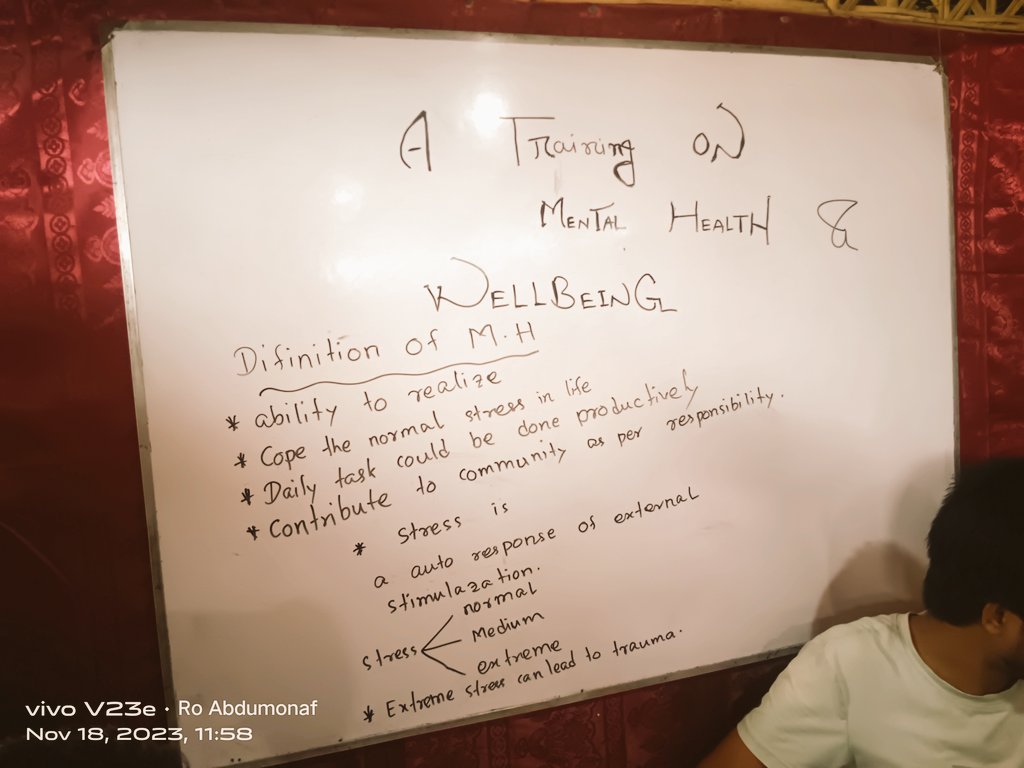 A Training ON
MENTAL HEALTH &
WELLBEING
Difinition of M.H
* ability to realize
* Cope the normal stress in life
* Daily task could be done productively
* Contribute to community as per responsibility.
* stress is
a auto response of external
stimulazation.
stress
normal
Medium
extreme
* Extreme stress can lead to trauma.
vivo V23e · Ro Abdumonaf
Nov 18, 2023, 11:58